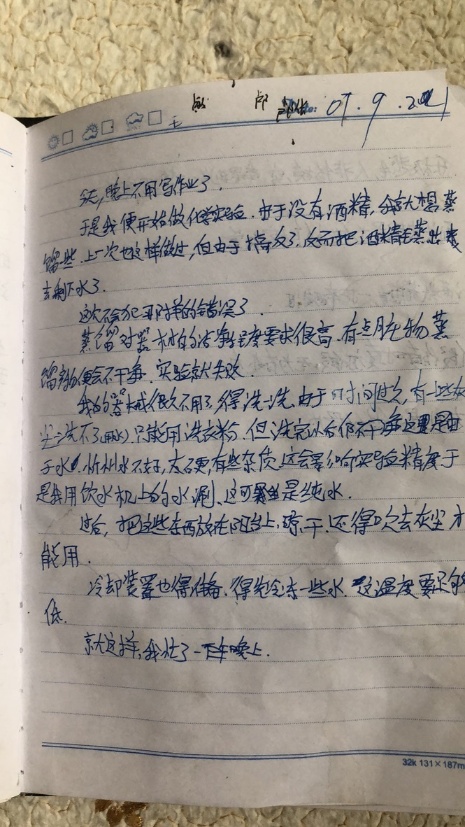 07.9.2
今天,晚上不用写作业了.
于是我便开始做化学实验.由于没有酒精,我就想蒸
馏一些.上一次也这样做过,但由于搞反了,反而把酒精蒸出
去剩下水了.
这次不会犯同样的错误了.
蒸馏对器材的洁净程度要求很高.有点脏物蒸
馏物便会不干净.实验就失败.
我的器械很久不用了,得洗一洗.由于时间过久,有一些灰
尘洗不了,只能用洗衣粉.但洗完以后仍不干净这是由
于水,忻州水不好,太硬有些杂质.这会影响实验精度于
是我用饮水机上的水涮.这可是纯水.
过后,把这些东西放在阳台上,晾干.还得吹去灰尘才
能用.
冷却装置也得准备.得先冷冻一些水.这温度要足够
低.
就这样,我忙了一晚上.
32k 131×187m